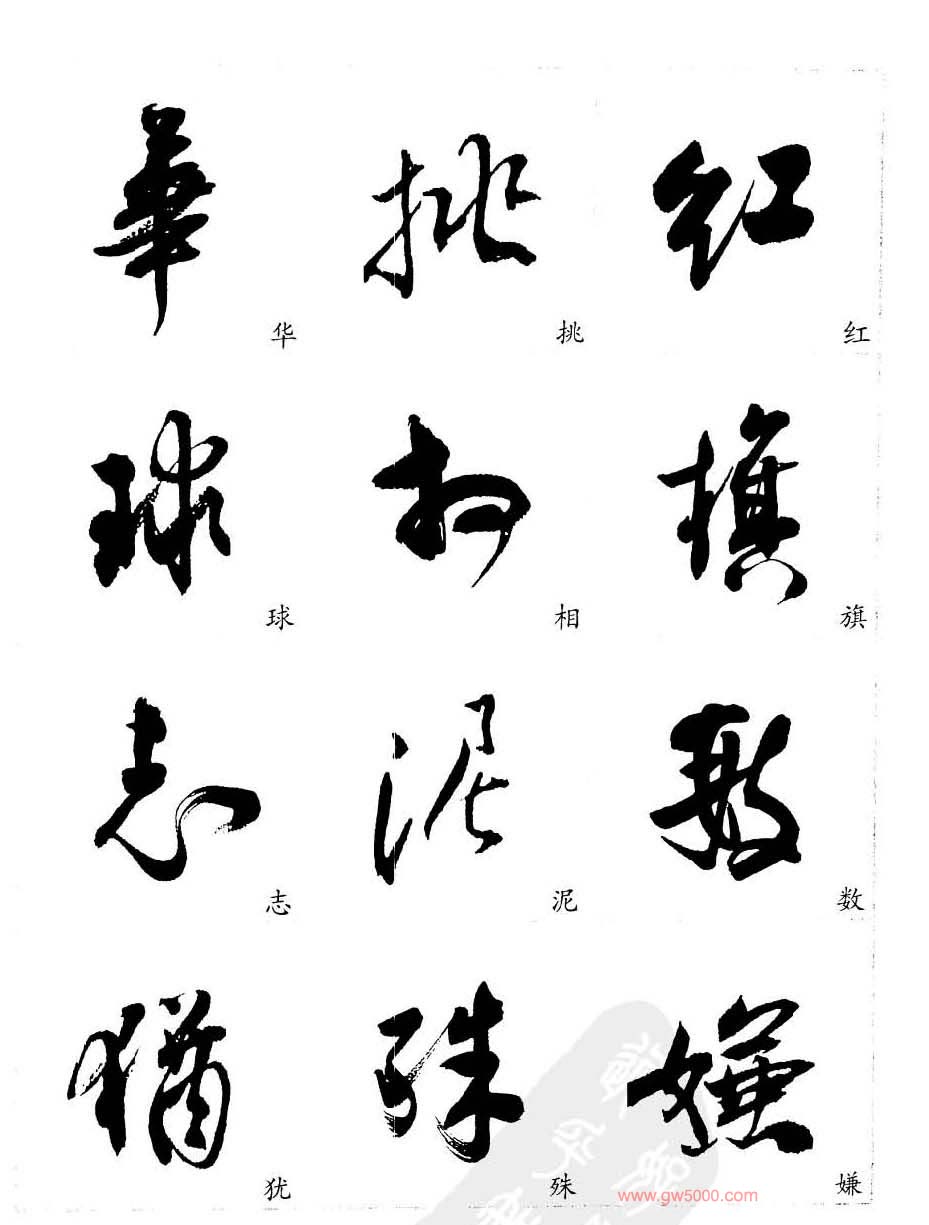 華 挑 红
华 挑 红
球 相 旗
球 相 旗
志 泥 数
志 泥 数
猶 殊 嫌
犹 殊 嫌
www.gw5000.com